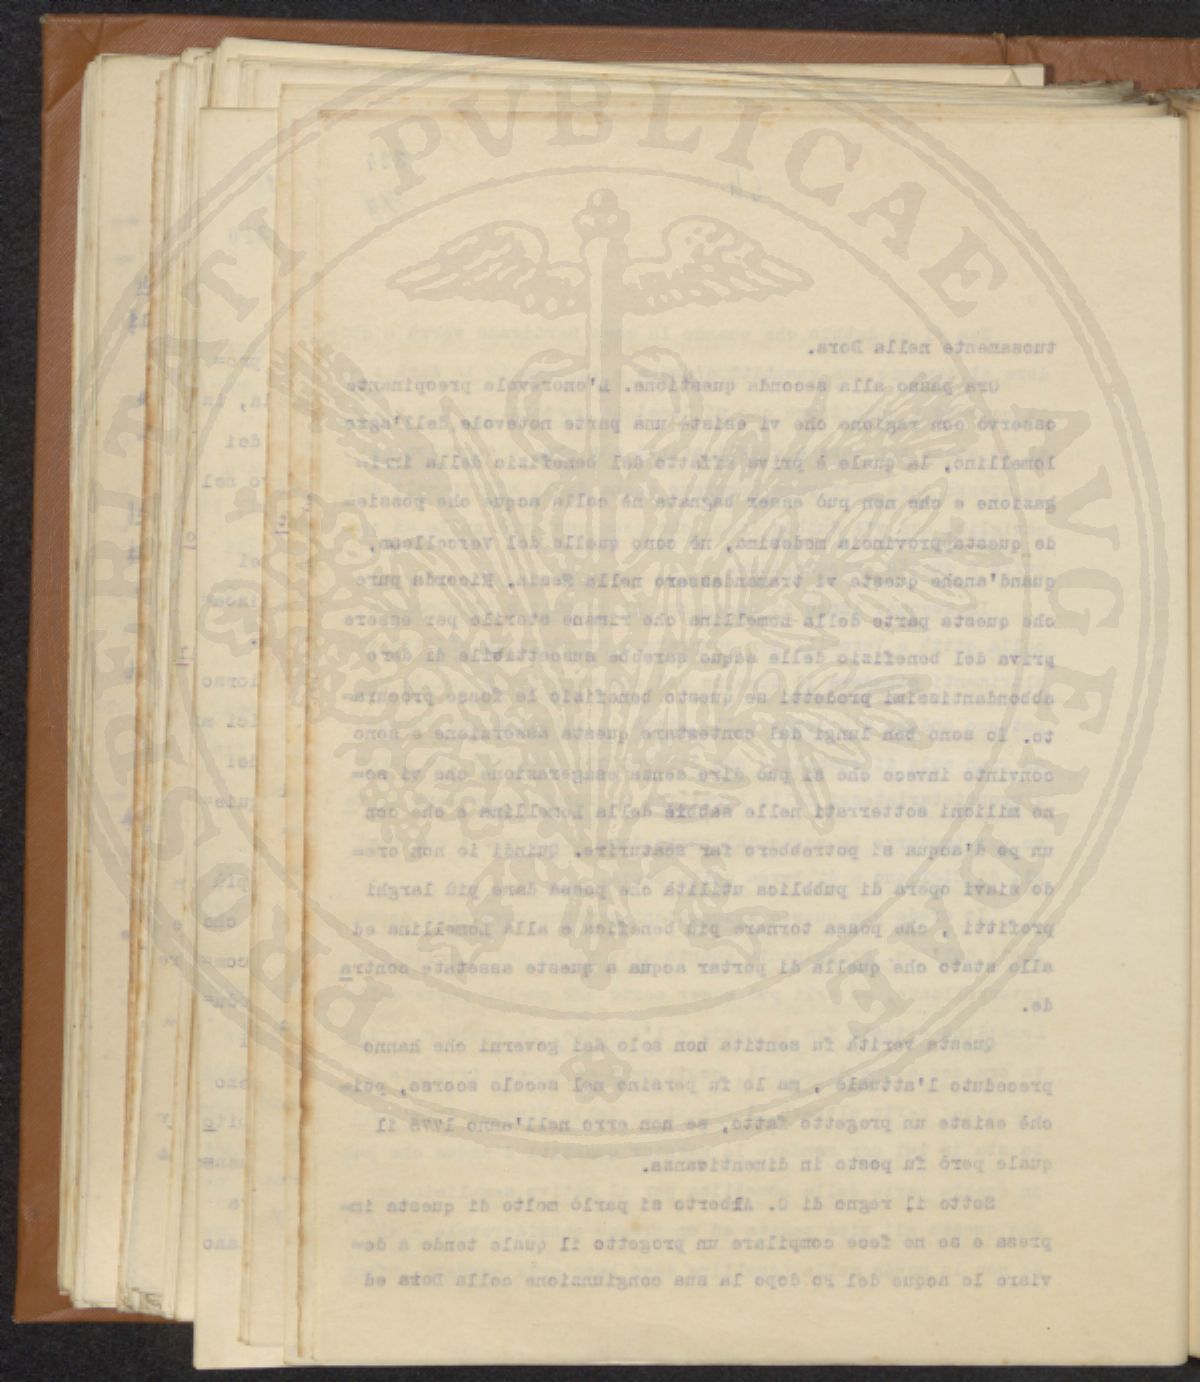 PROSPERITATI PUBLICAE AVGENDAE
tuosamente nella Dora.
Ora passo alla seconda questione. L'onorevole preopinante
osservò con ragione che vi esiste una parte notevole dell'agro
lomellino, la quale è priva affatto del benefizio della irri-
gazione e che non può esser bagnata nè colle acque che possie-
de questa provincia medesima, nè cono quelle del Vercellese,
quand'anche queste vi tramandassero nella Sesia. Ricorda pure
che questa parte della Lomellina che rimane sterile per essere
priva del benefizio delle acque sarebbe suscettibile di dare
abbondantissimi prodotti se questo benefizio le fosse procura-
to. Io sono ben lungi dal contestare questa asserzione e sono
convinto invece che si può dire senza esagerazione che vi so-
no milioni sotterrati nelle sabbie della Lomellina e che con
un po d'acqua si potrebbero far scaturire. Quindi io non cre-
do siavi opera di pubblica utilità che possa dare più larghi
profitti , che possa tornare più benefica e alla Lomellina ed
allo stato che quella di portar acqua a queste assetate contra
de.
Questa verità fu sentita non solo dai governi che hanno
preceduto l'attuale , ma lo fu persino nel secolo scorso, poi-
chè esiste un progetto fatto, se non erro nell'anno 1775 il
quale però fu posto in dimenticanza.
Sotto il regno di C. Alberto si parlò molto di questa im-
presa e se ne fece compilare un progetto il quale tende a de-
viare le acque del Po dopo la sua congiunzione colla Dora ed